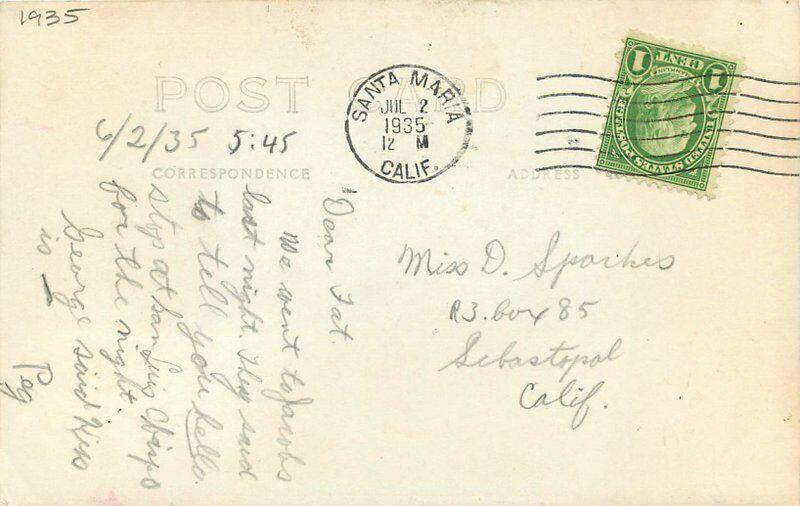 1935
POST CARD
6/2/35 5:45
CORRESPONDENCE
ADDRESS
SANTA MARIA
JUL 2
1935
12 M
CALIF.
1 CENT 1
UNITED STATES POSTAGE
Dear Fat.
We went to Jacobs
last night. They said
to tell you hello.
stop at San Luis Obispo
for the night
George said Kiss
is
Peg
Miss D. Sparkes
R3. Box 85
Sebastopol
Calif.